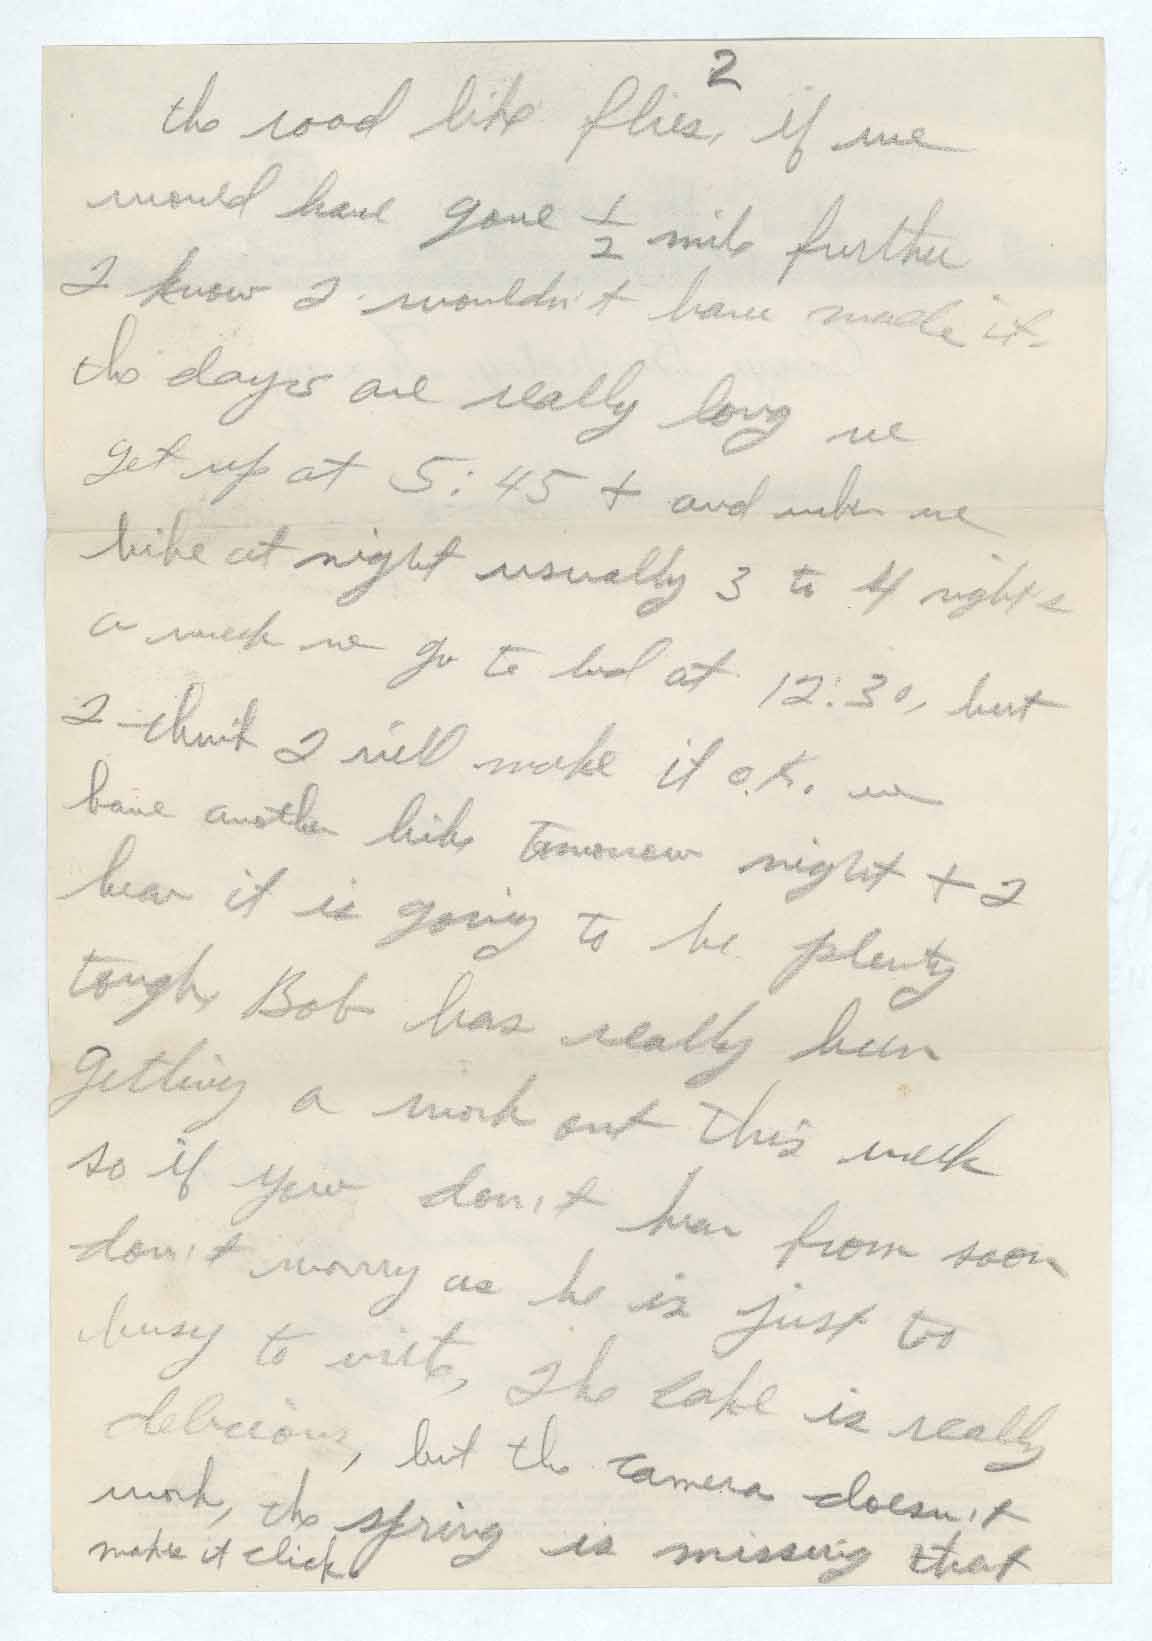 2
the road like flies, if we
would have gone 1/2 mile further
I know I wouldn't have made it.
the days are really long we
get up at 5:45 + and when we
hike at night usually 3 to 4 nights
a week we go to bed at 12:30, but
I think I will make it O.K. we
have another hike tomorrow night + I
hear it is going to be plenty
tough, Bob has really been
getting a work out this week
so if you don't hear from soon
don't worry as he is just to
busy to write, The cake is really
delicious, but the camera doesn't
work, the spring is missing that
makes it click.